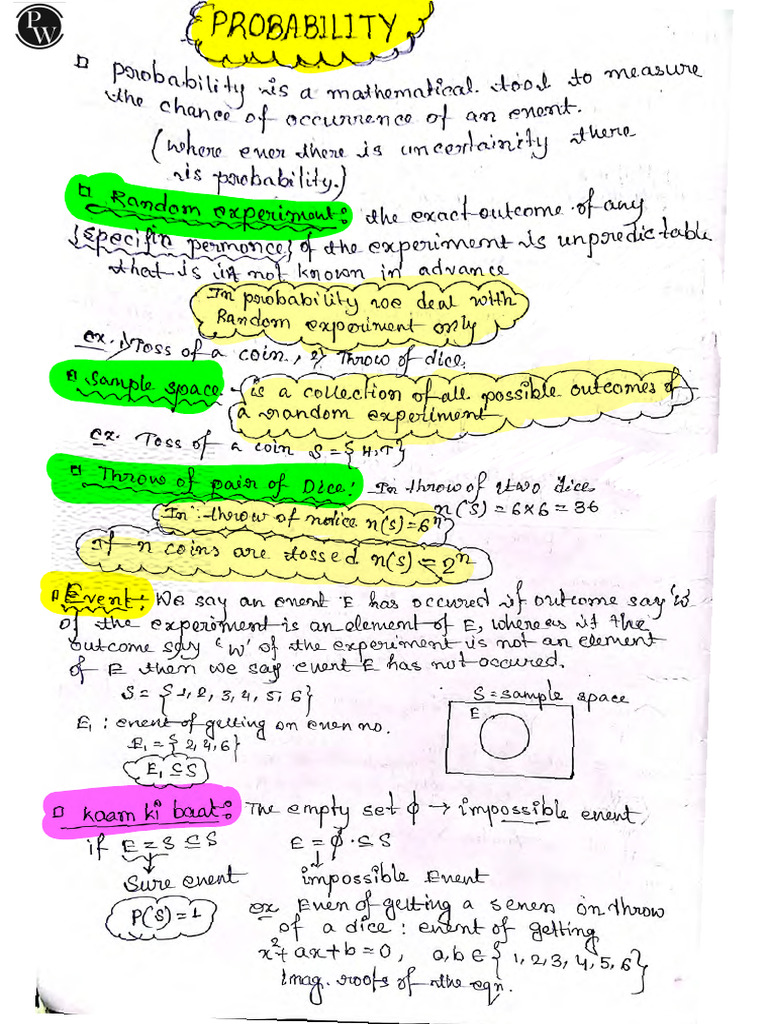 PW
PROBABILITY
probability is a mathematical tool to measure
the chance of occurrence of an event.
(where ever there is uncertainity there
is probability.)
Random experiment: the exact outcome of any
{specific permonce} of the experiment is unpredictable
that is it not known in advance
In probability we deal with
Random experiment only
ex. 1) Toss of a coin, 2) Throw of dice.
Sample space - is a collection of all possible outcomes of
a random experiment
ex. Toss of a coin S = {H, T}
Throw of pair of Dice: In throw of two dice
n(S) = 6×6 = 36
In throw of n dice n(s) = 6ⁿ
If n coins are tossed n(s) = 2ⁿ
Event: We say an event E has occured if outcome say 'w'
of the experiment is an element of E, whereas if the
outcome say 'w' of the experiment is not an element
of E then we say event E has not occured.
S = {1, 2, 3, 4, 5, 6}
S = sample space
E₁ : event of getting an even no.
E
E₁ = {2, 4, 6}
E₁ ⊆ S
kaam ki baat: The empty set ϕ → impossible event
if E = S ⊆ S E = ϕ ⊆ S
Sure event impossible Event
P(S) = 1
ex Even of getting a seven on throw
of a dice : event of getting
x² + ax + b = 0, a, b ∈ {1, 2, 3, 4, 5, 6}
Imag. roots of the eqn.